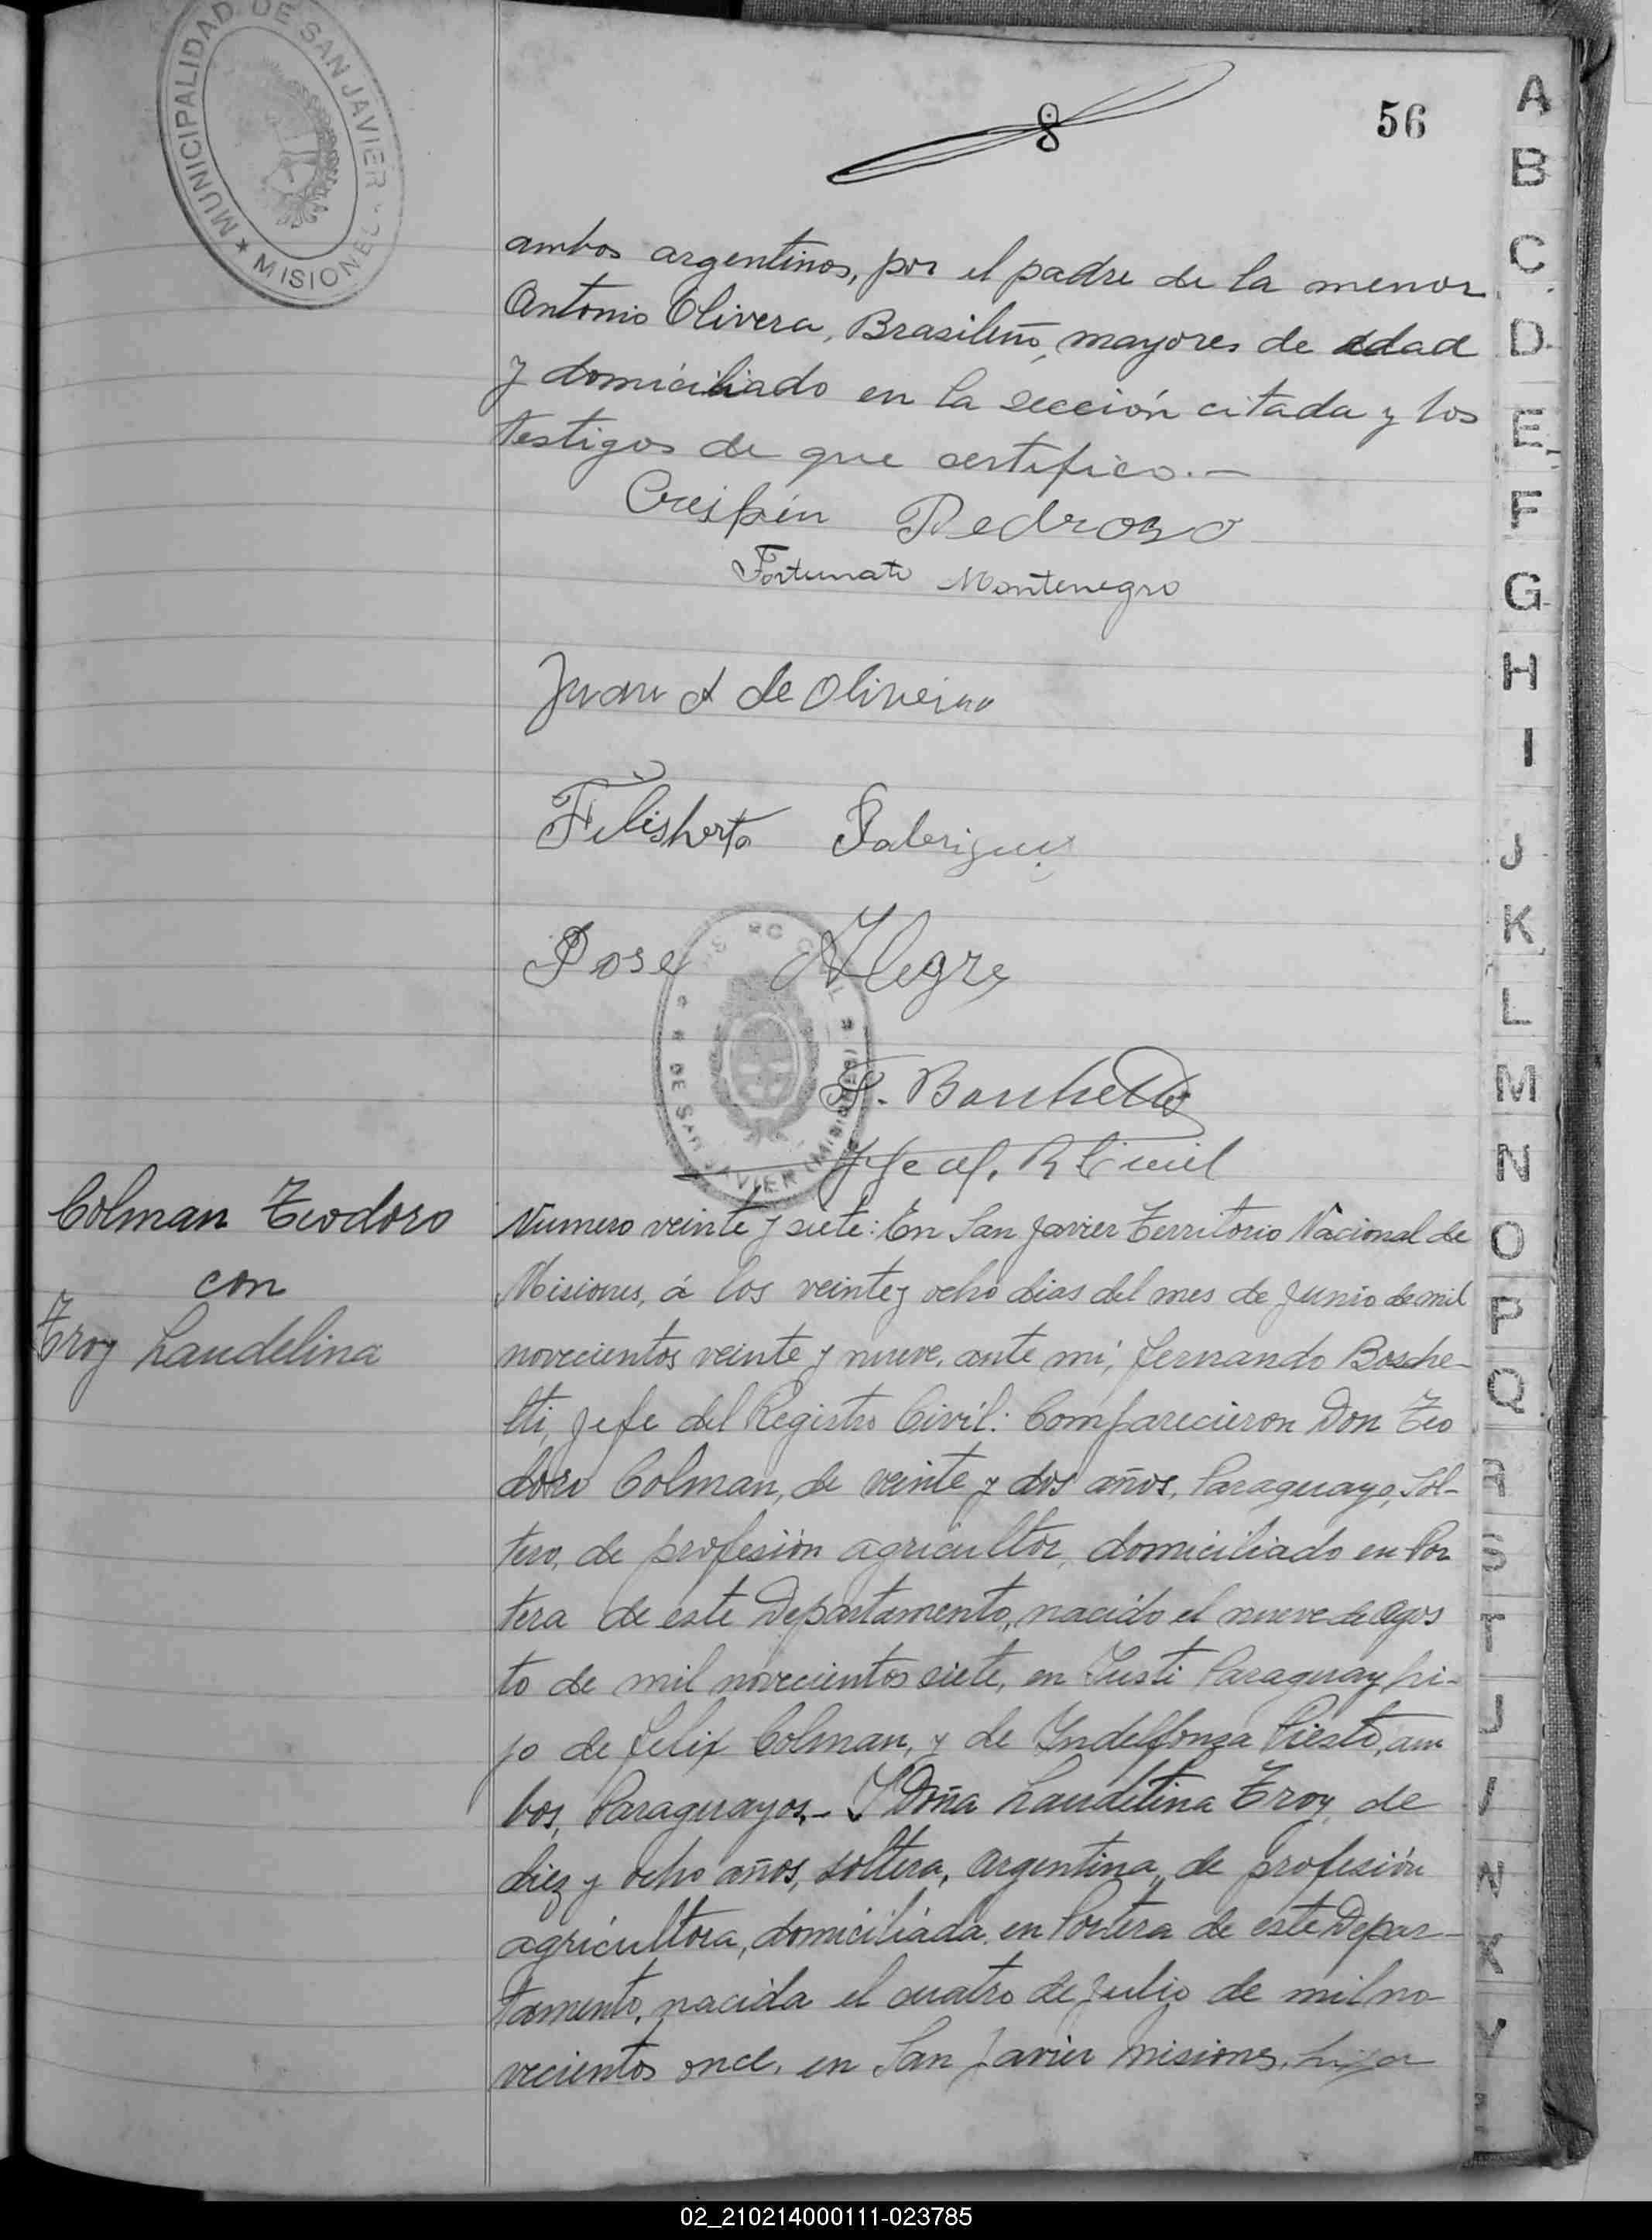 MUNICIPALIDAD DE SAN JAVIER
★ MISIONES
56
ambos argentinos, por el padre de la menor
Antonio Olivera, Brasileño, mayores de edad
y domiciliado en la sección citada y los
testigos de que sertifico.—
Crispin Pedrozo
Fortunato Montenegro
Juan A de Oliveira
Filisberto
Jose Alegre
F. Boschetti
Jefe del R Civil
Colman Teodoro
con
Troy Laudelina
Numero veinte y siete: En San Javier Territorio Nacional de
Misiones, á los veinte y ocho dias del mes de Junio de mil
novecientos veinte y nueve, ante mí, Fernando Bosche-
tti, Jefe del Registro Civil: Comparecieron Don Teo
doro Colman, de veinte y dos años, Paraguayo, Sol-
tero, de profesión agricultor, domiciliado en Por
tera de este Departamento, nacido el nueve de Agos
to de mil novecientos siete, en Paraguay, hi-
jo de Felix Colman, y de Yndelfonza am
bos, Paraguayos.- Y Doña Laudelina Troy, de
diez y ocho años, soltera, Argentina, de profesión
agricultora, domiciliada en Portera de este Depar-
tamento, nacida el cuatro de Julio de mil no-
vecientos once, en San Javier Misiones, hija
A
B
C
D
E
F
G
H
I
J
K
L
M
N
O
P
Q
R
S
T
02_210214000111-023785